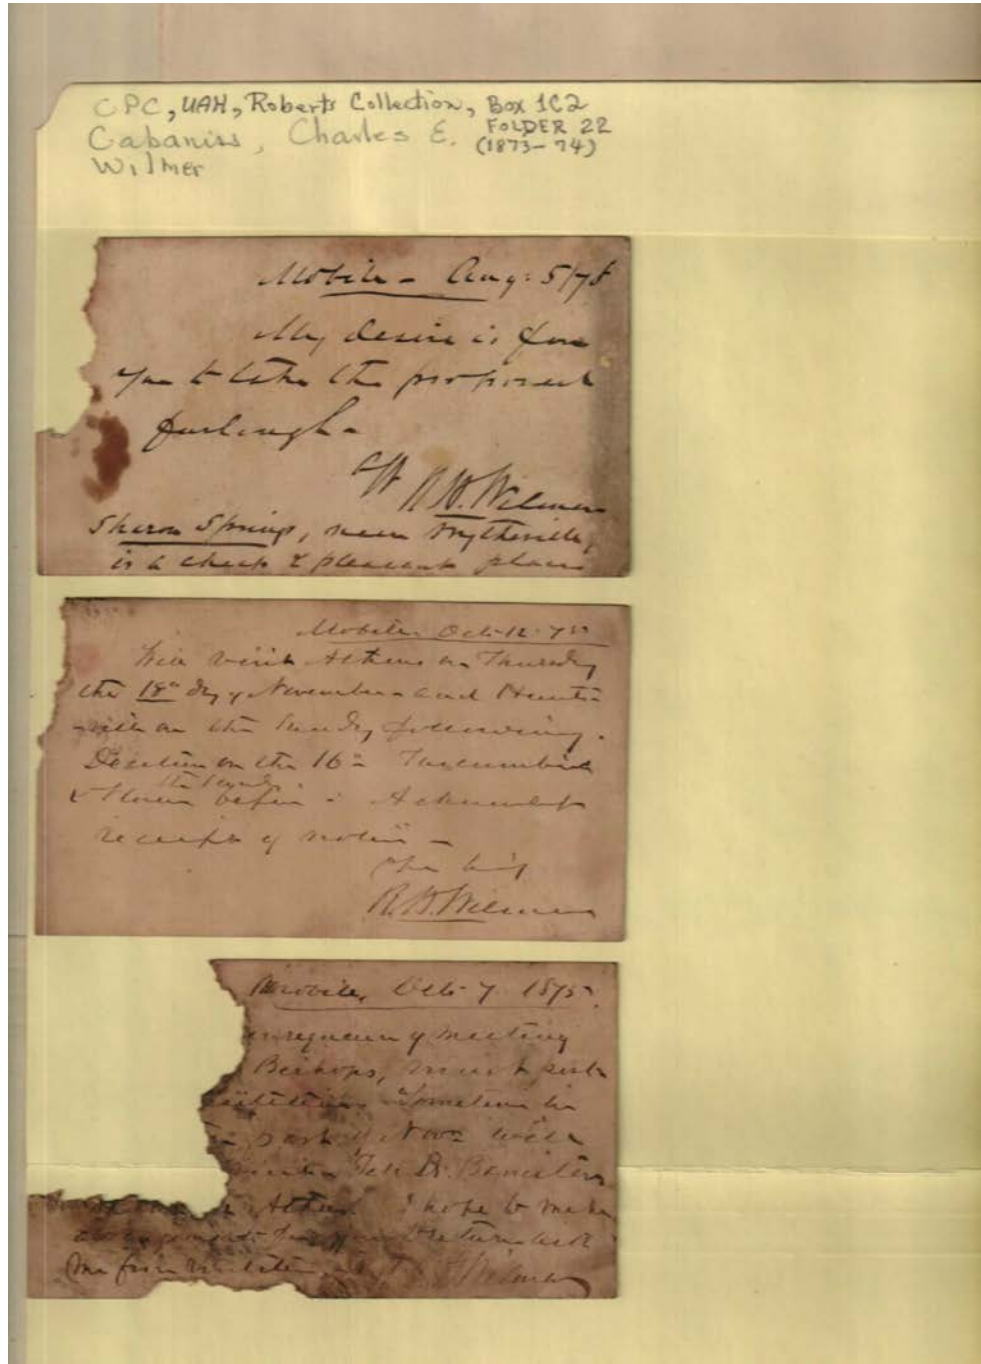 CPC, UAH, Roberts Collection, Box 1C2
FOLDER 22
Cabaniss, Charles E. (1873-74)
Wilmer
Mobile - Aug: 5/78
My desire is for
you to take the proposed
furlough -
R. H. Wilmer
Sharon Springs, near Wytheville,
is a cheap & pleasant place
Mobile Oct. 12. 75
Will visit Athens on Thursday
the 18th day of November and Hunts-
ville on the Sunday following.
Decatur on the 16th Tuscumbia
the Sunday
& Florence before - Acknowledge
receipt of notice -
R. H. Wilmer
Mobile, Oct. 7. 1875
of meeting
Bishops, must
Sometime in
part of Novr will
Tell Dr. Banister
Athens. I hope to make
arrangements for you to return with
me from
Wilmer